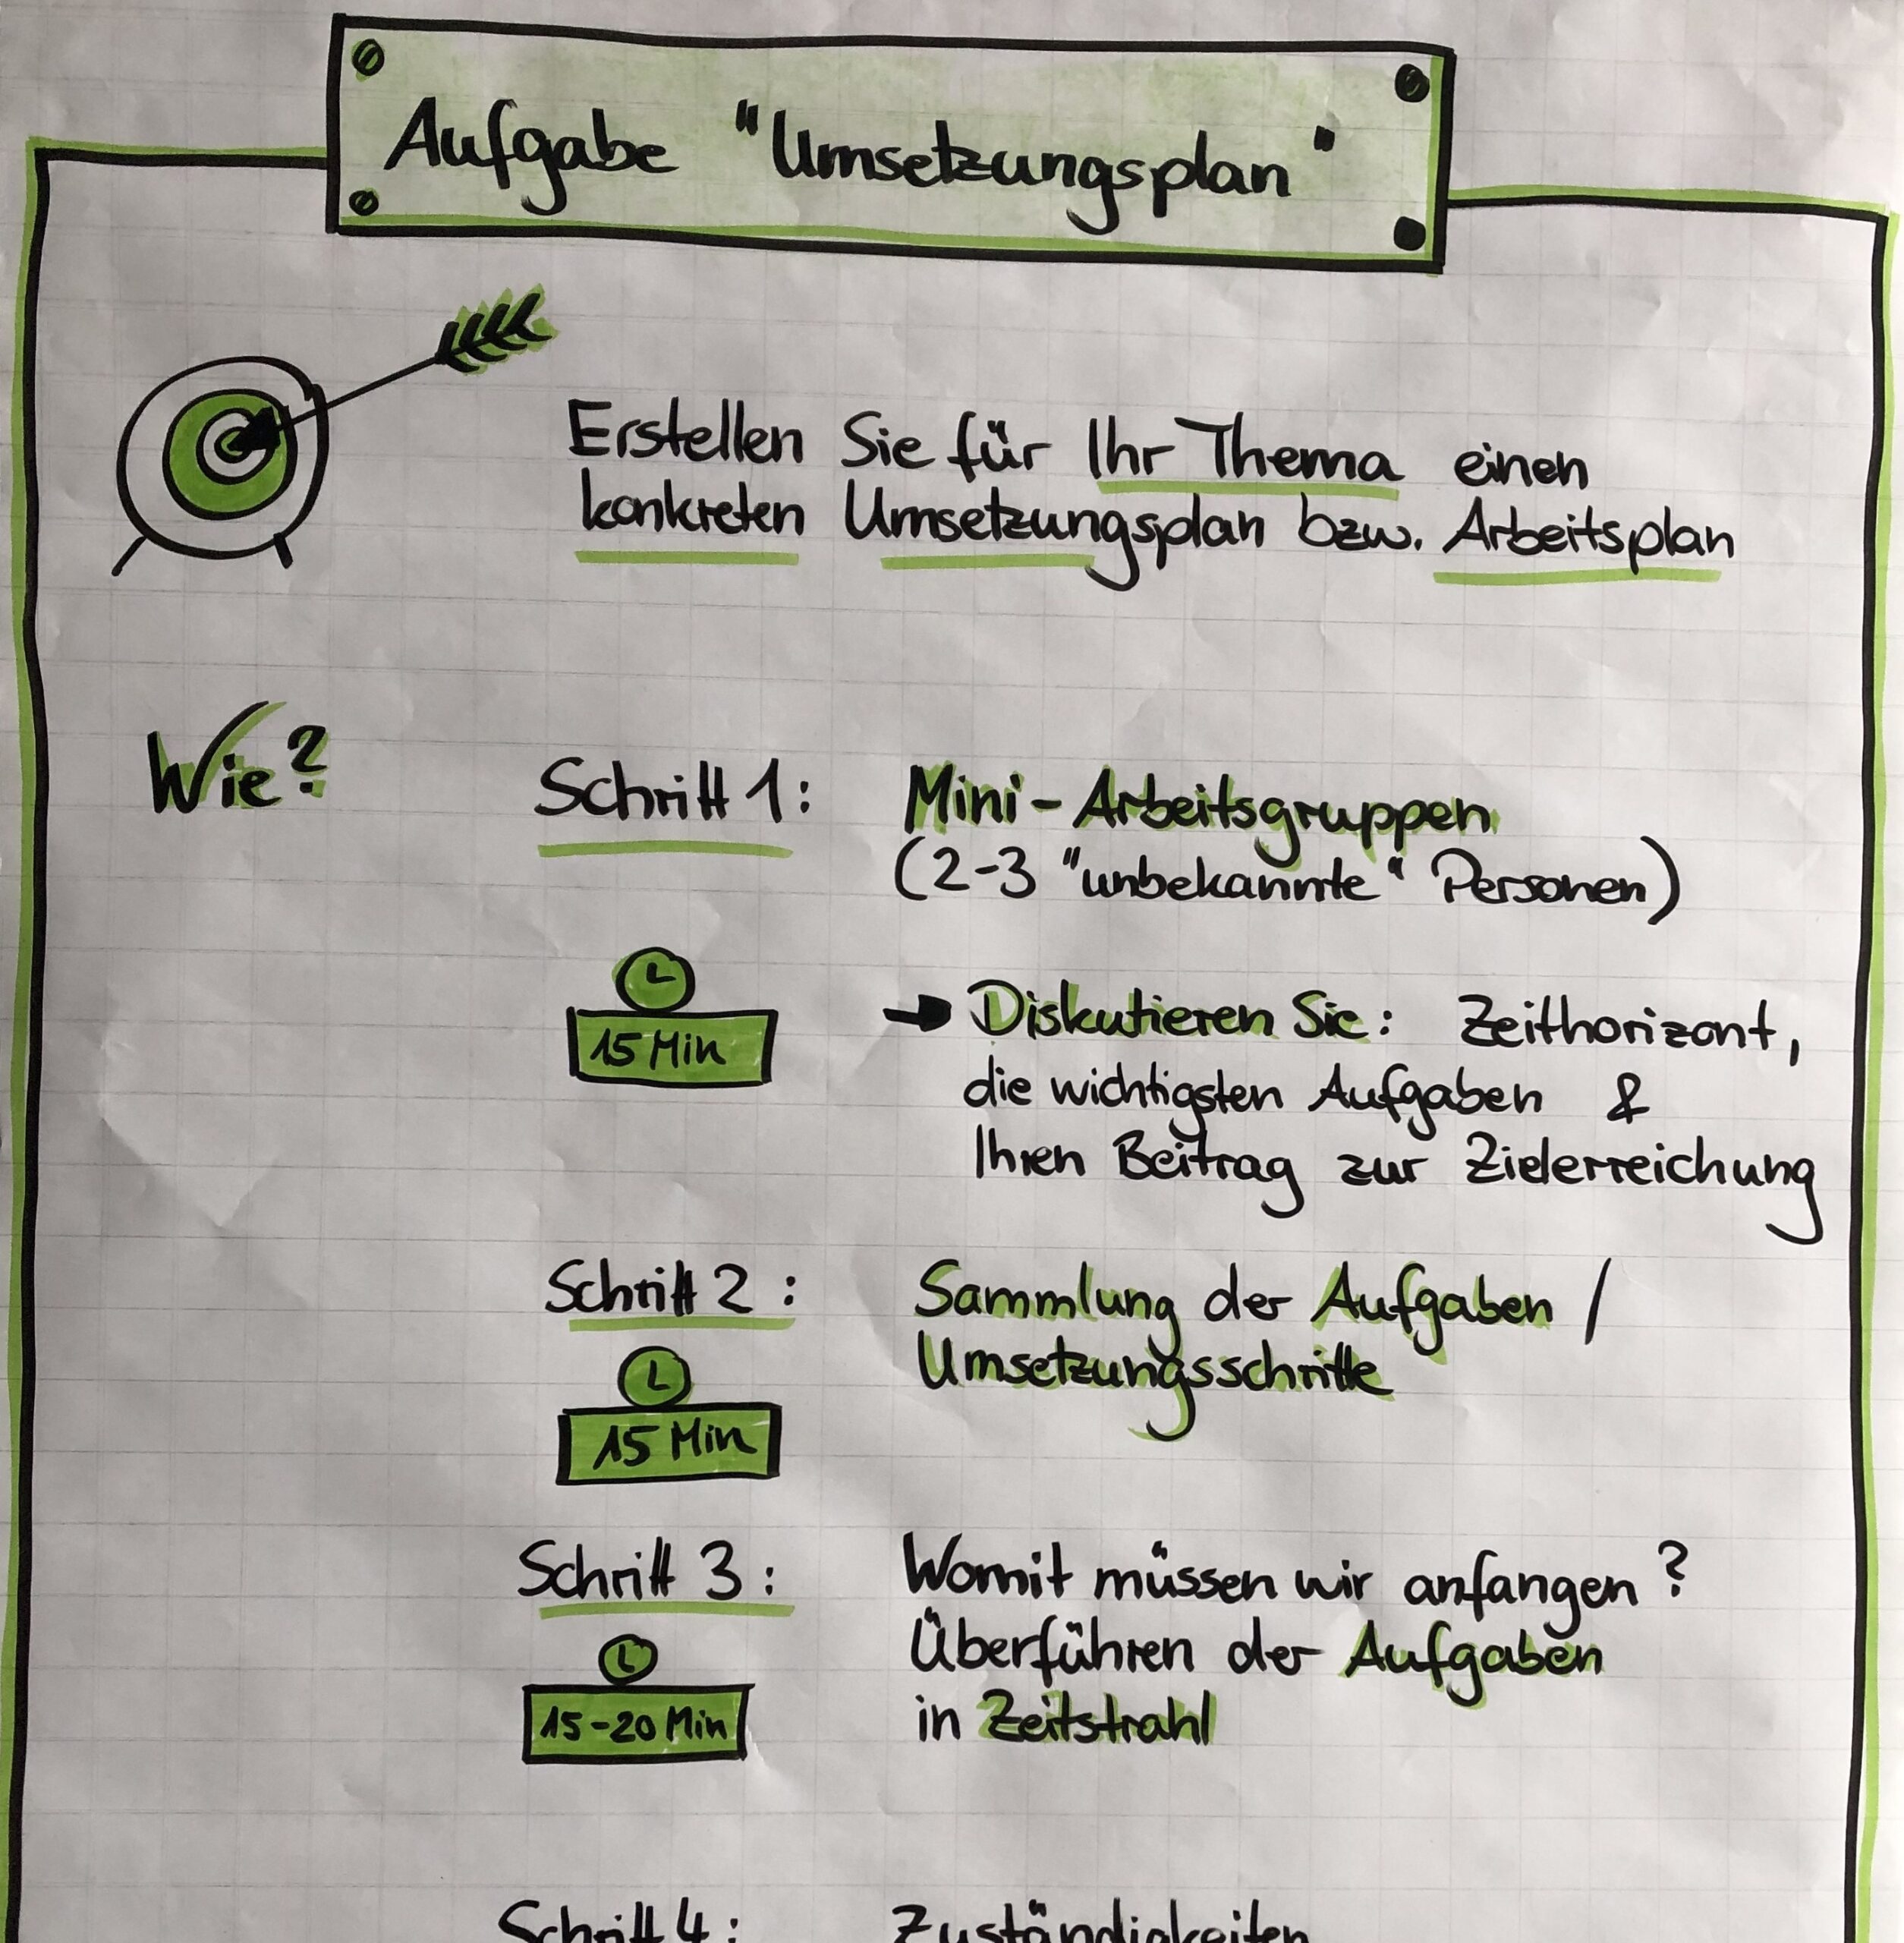 Aufgabe "Umsetzungsplan"
Erstellen Sie für Ihr Thema einen
konkreten Umsetzungsplan bzw. Arbeitsplan
Wie?
Schritt 1: Mini-Arbeitsgruppen
(2-3 "unbekannte" Personen)
15 Min
→ Diskutieren Sie: Zeithorizont,
die wichtigsten Aufgaben &
Ihren Beitrag zur Zielerreichung
Schritt 2: Sammlung der Aufgaben /
Umsetzungsschritte
15 Min
Schritt 3: Womit müssen wir anfangen?
Überführen der Aufgaben
15-20 Min
in Zeitstrahl
Schritt 4: Zuständigkeiten